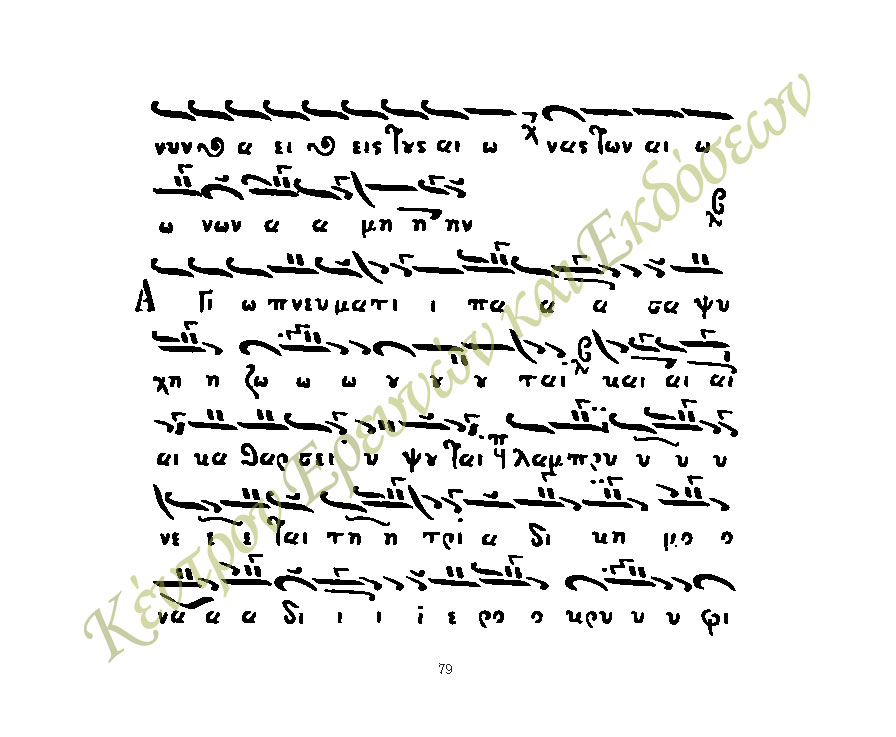 νυν ϗ α ει ϗ εις τους αι ω νας των αι ω
ω νων α α μη η ην
Α γι ω πνευματι ι πα α α σα ψυ
χη η ζω ω ω ου ου ου ται και αι αι
αι κα θαρ σει υ ψου ται λαμπρυ υ υ υ
νε ε ε ται τη η τρι α δι κη μο ο
να α α δι ι ι ι ε ρο ο κρυ υ υ φι
79
Κέντρον Ερευνών και Εκδόσεων